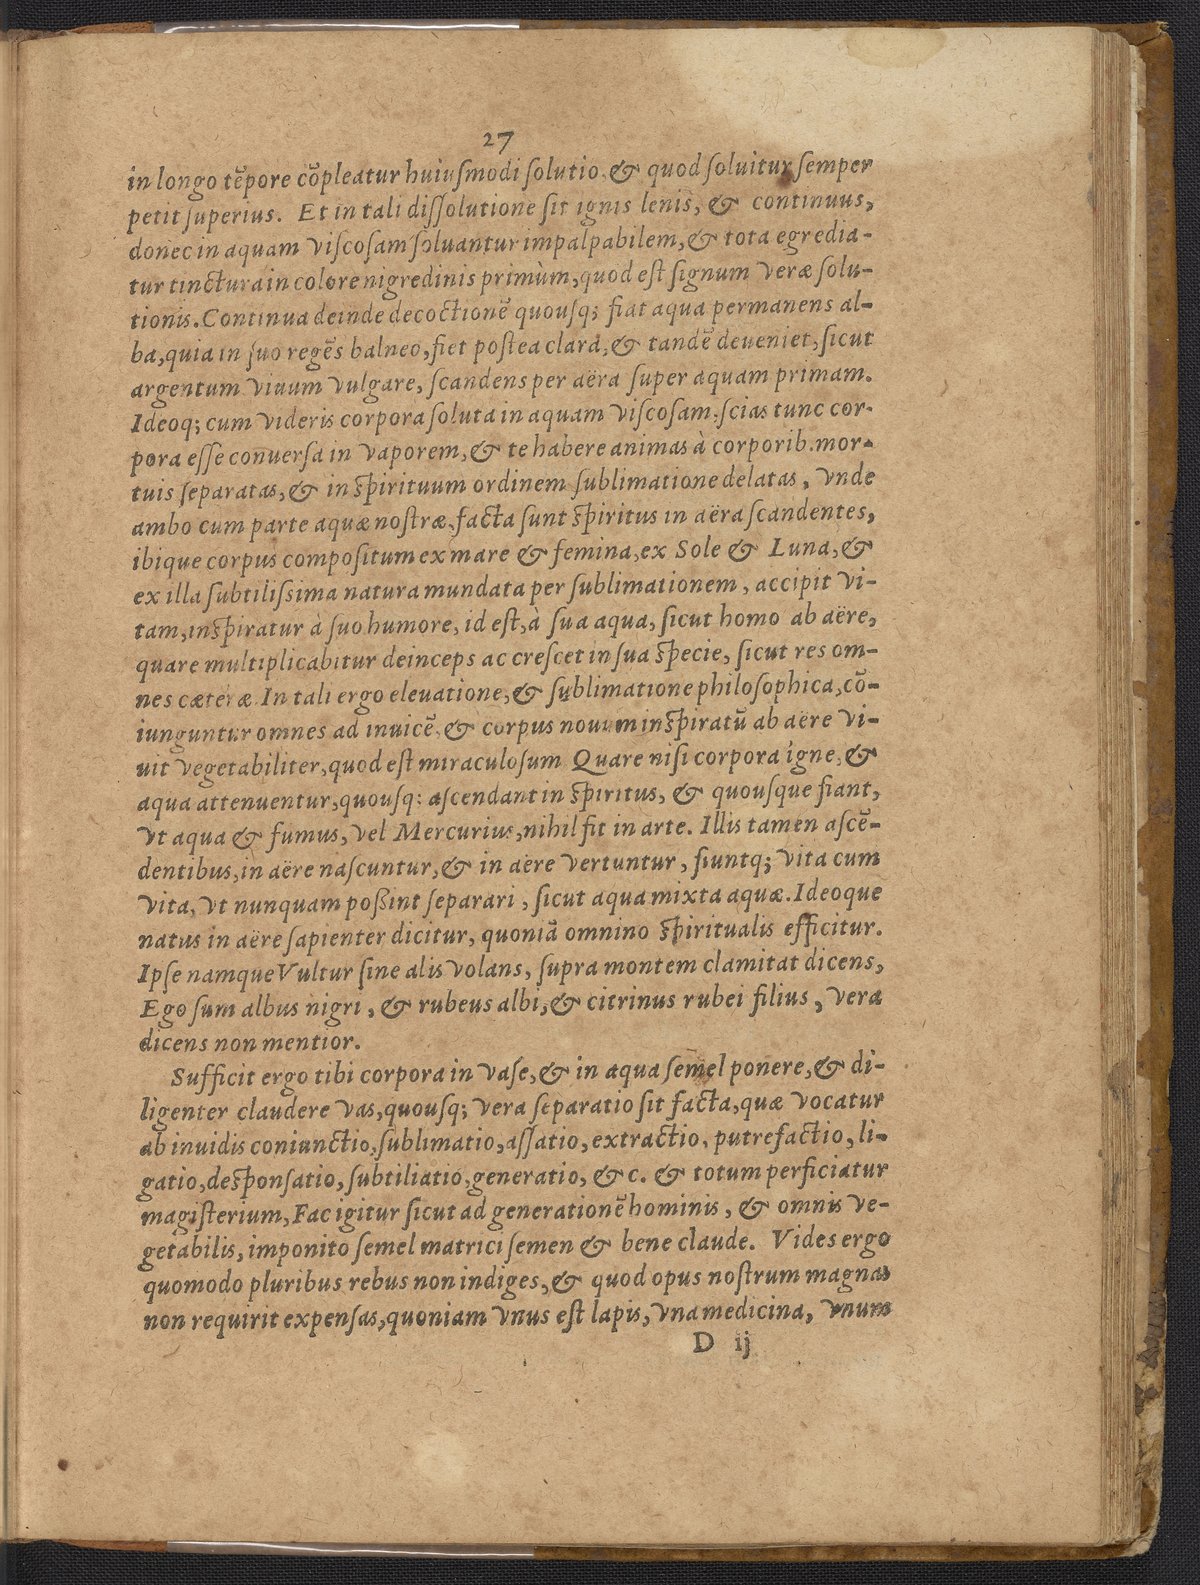 27
in longo tẽpore cõpleatur huiuſmodi ſolutio, & quod ſoluitur ſemper
petit ſuperius. Et in tali diſſolutione ſit ignis lenis, & continuus,
donec in aquam viſcoſam ſoluantur impalpabilem, & tota egredia-
tur tinctura in colore nigredinis primùm, quod eſt ſignum veræ ſolu-
tionis. Continua deinde decoctionẽ quouſq; fiat aqua permanens al-
ba, quia in ſuo regẽs balneo, fiet poſtea clara, & tandẽ deueniet, ſicut
argentum viuum vulgare, ſcandens per aëra ſuper aquam primam.
Ideoq; cum videris corpora ſoluta in aquam viſcoſam, ſcias tunc cor-
pora eſſe conuerſa in vaporem, & te habere animas à corporib. mor-
tuis ſeparatas, & in ſpirituum ordinem ſublimatione delatas, vnde
ambo cum parte aquæ noſtræ, facta ſunt ſpiritus in aëra ſcandentes,
ibique corpus compoſitum ex mare & femina, ex Sole & Luna, &
ex illa ſubtiliſsima natura mundata per ſublimationem, accipit vi-
tam, inſpiratur à ſuo humore, id eſt, à ſua aqua, ſicut homo ab aëre,
quare multiplicabitur deinceps ac creſcet in ſua ſpecie, ſicut res om-
nes cæteræ. In tali ergo eleuatione, & ſublimatione philoſophica, cõ-
iunguntur omnes ad inuicẽ, & corpus nouum inſpiratũ ab aëre vi-
uit vegetabiliter, quod eſt miraculoſum Quare niſi corpora igne, &
aqua attenuentur, quouſq; aſcendant in ſpiritus, & quouſque fiant,
vt aqua & fumus, vel Mercurius, nihil fit in arte. Illis tamen aſcẽ-
dentibus, in aëre naſcuntur, & in aëre vertuntur, fiuntq; vita cum
vita, vt nunquam poßint ſeparari, ſicut aqua mixta aquæ. Ideoque
natus in aëre ſapienter dicitur, quoniã omnino ſpiritualis efficitur.
Ipſe namque Vultur ſine alis volans, ſupra montem clamitat dicens,
Ego ſum albus nigri, & rubeus albi, & citrinus rubei filius, vera
dicens non mentior.
Sufficit ergo tibi corpora in vaſe, & in aqua ſemel ponere, & di-
ligenter claudere vas, quouſq; vera ſeparatio ſit facta, quæ vocatur
ab inuidis coniunctio, ſublimatio, aſſatio, extractio, putrefactio, li-
gatio, deſponſatio, ſubtiliatio, generatio, & c. & totum perficiatur
magiſterium, Fac igitur ſicut ad generationẽ hominis, & omnis ve-
getabilis, imponito ſemel matrici ſemen & bene claude. Vides ergo
quomodo pluribus rebus non indiges, & quod opus noſtrum magnas
non requirit expenſas, quoniam vnus eſt lapis, vna medicina, vnum
D ij